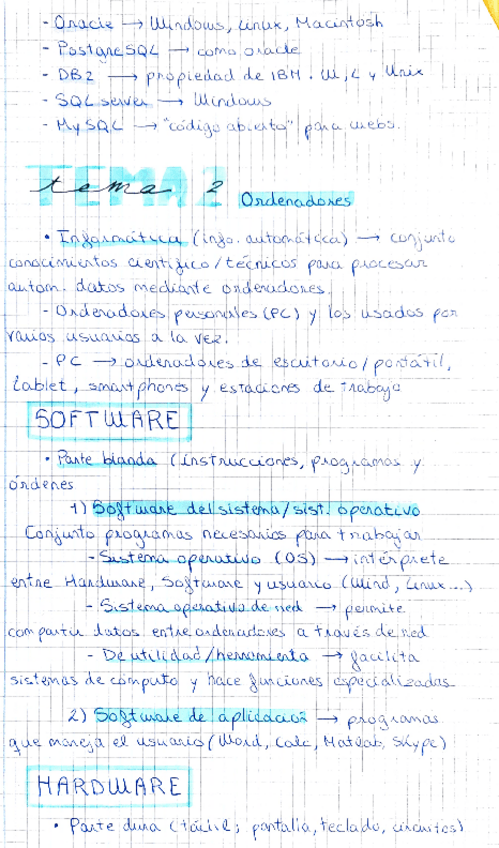 - Oracle → Windows, Linux, Macintosh
- PostgreSQL → como oracle
- DB2 → propiedad de IBM. W, L y Unix
- SQL server → Windows
- MySQL → "código abierto" para webs.
TEMA 2
tema 2 Ordenadores
• Informática (info. automática) → conjunto
conocimientos científico/técnicos para procesar
autom. datos mediante ordenadores.
- Ordenadores personales (PC) y los usados por
varios usuarios a la vez.
- PC → ordenadores de escritorio/portátil,
tablet, smartphones y estaciones de trabajo
SOFTWARE
• Parte blanda (instrucciones, programas y
órdenes
1) Software del sistema/sist. operativo
Conjunto programas necesarios para trabajar
- Sistema operativo (OS) → intérprete
entre Hardware, Software y usuario (Wind, Linux...)
- Sistema operativo de red → permite
compartir datos entre ordenadores a través de red
- De utilidad/herramienta → facilita
sistemas de computo y hace funciones especializadas
2) Software de aplicación → programas
que maneja el usuario (Word, Calc, Matlab, Skype)
HARDWARE
• Parte dura (táctil; pantalla, teclado, circuitos)